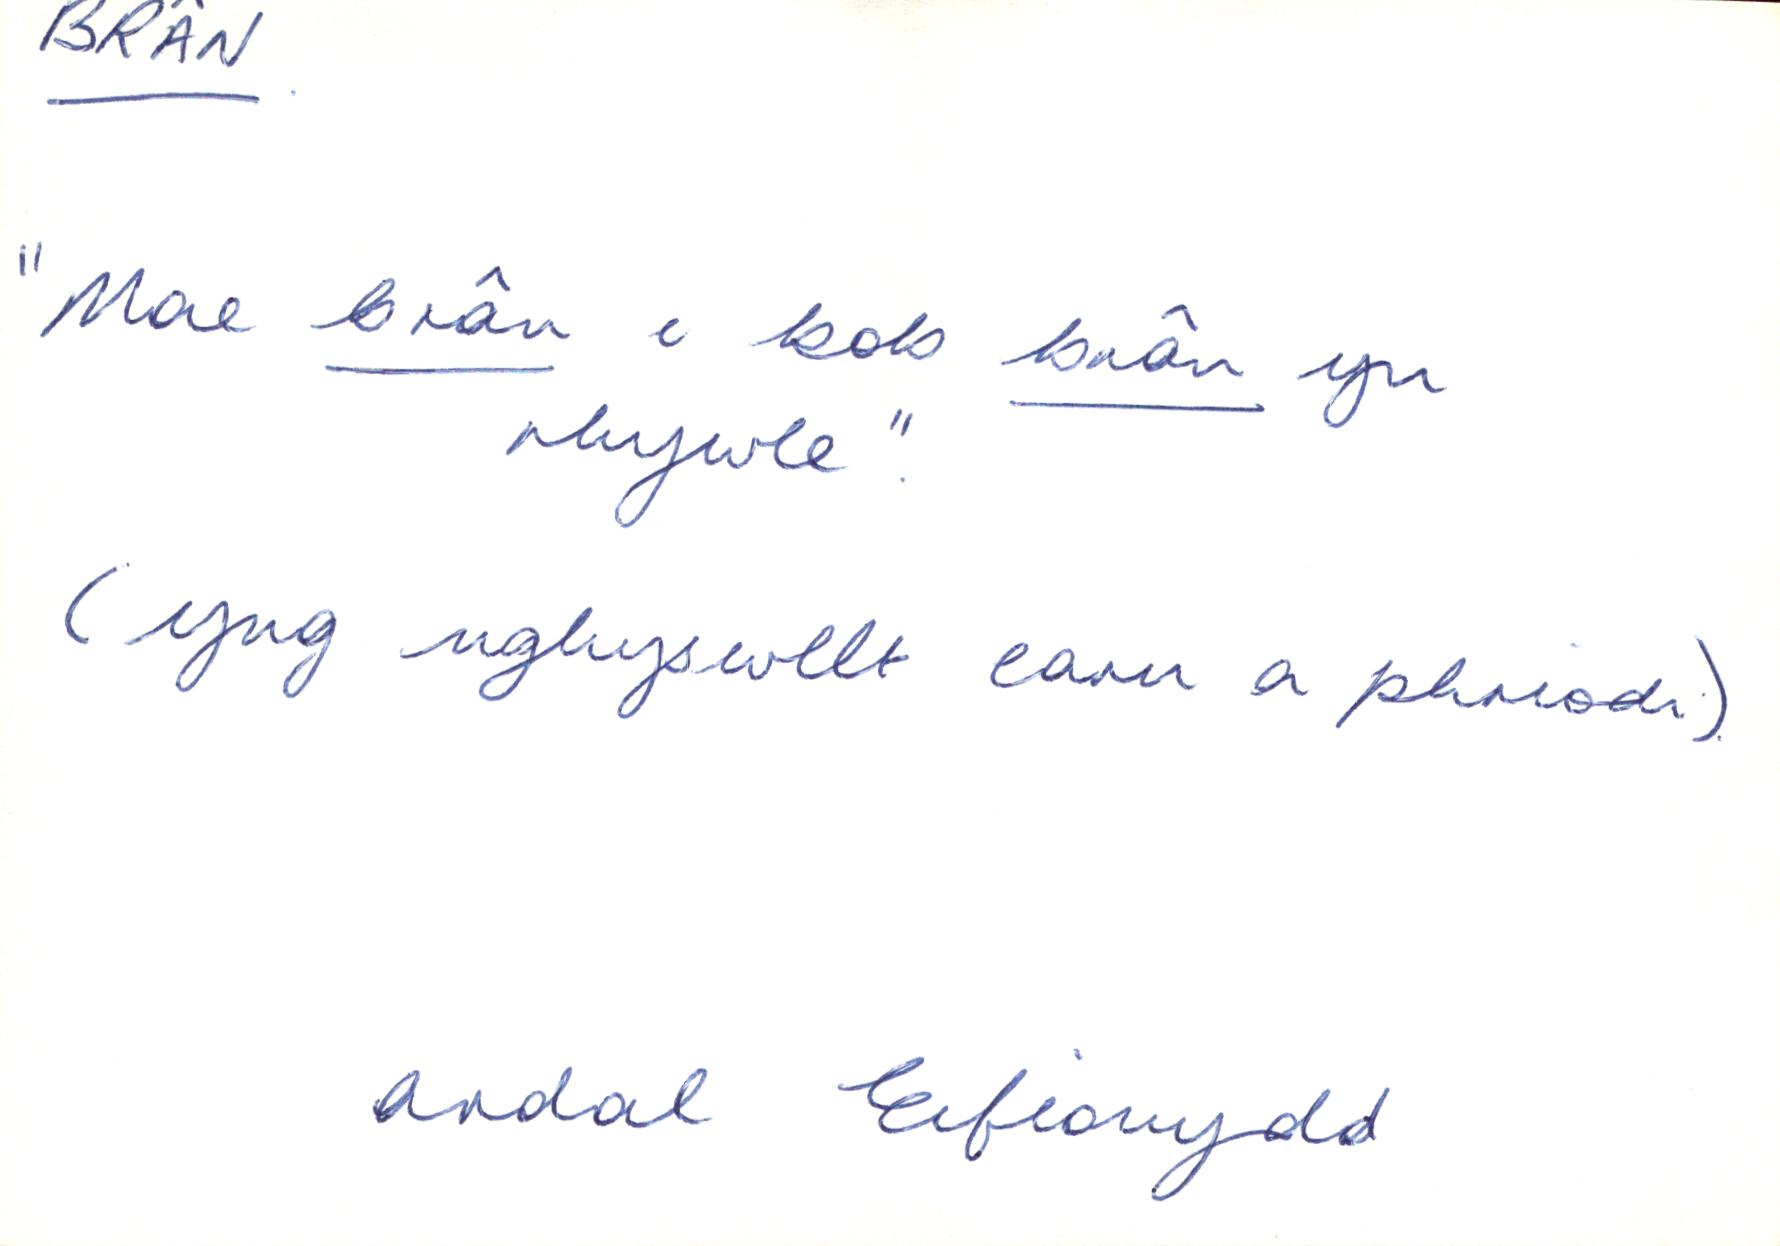 BRÂN
"Mae brân i bob brân yn
rhywle".
(yng nghyswllt caru a phriodi).
ardal Eifionydd